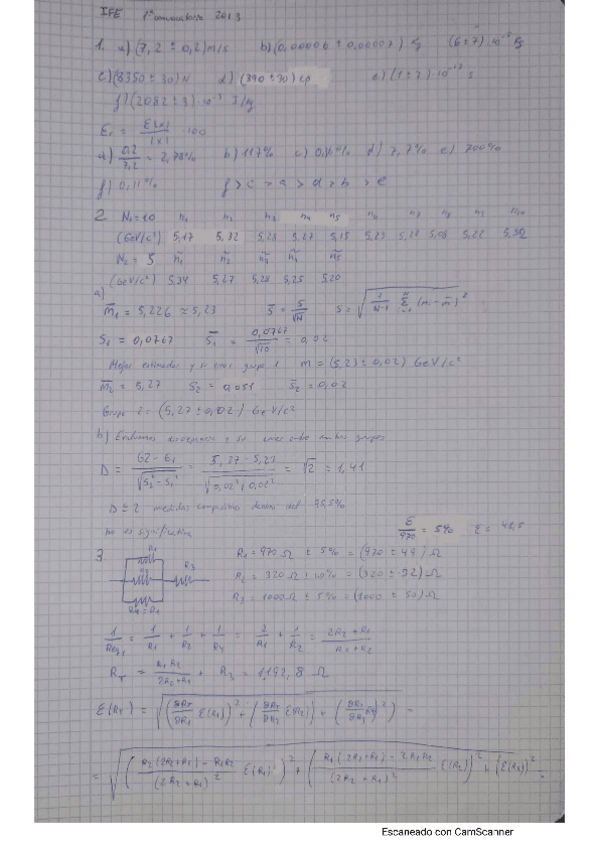 IFE 1ª convocatoria 2013
1. a) (7,2 ± 0,2) m/s b) (0,00006 ± 0,00007) Kg (6±7)·10⁻⁵ Kg
c) (8350 ± 30) N d) (390 ± 30) cp e) (1 ± 2)·10⁻¹³ s
f) (2082 ± 3)·10⁻³ J/Kg
Er = E(x)/|x| · 100
a) 0,2/7,2 = 2,78% b) 117% c) 0,36% d) 7,7% e) 200%
f) 0,11% f > c > a > d > b > e
2. N₁=10 n₁ n₂ n₃ n₄ n₅ n₆ n₇ n₈ n₉ n₁₀
(GeV/c²) 5,17 5,32 5,21 5,27 5,15 5,23 5,28 5,08
N₂ = 5 ñ₁ ñ₂ ñ₃ ñ₄ ñ₅
(GeV/c²) 5,34 5,27 5,28 5,25 5,20
a)
m̄₁ = 5,226 ≈ 5,23 S̄ = S/√N S = √(1/(N-1) Σ (mᵢ - m̄)²)
S₁ = 0,0767 S̄₁ = 0,0767/√10 = 0,02
Mejor estimador y su error grupo 1 m = (5,23 ± 0,02) GeV/c²
m̄₂ = 5,27 S₂ = 0,051 S̄₂ = 0,02
Grupo 2 = (5,27 ± 0,02) GeV/c²
b) Evaluamos discrepancia y su error entre ambos grupos
D = = √2 = 1,41
D ≤ 2 medidas compatibles dentro del 95,5%
no es significativa
E/970 = 5% E = 48,5
3. R₁ = 970 Ω ± 5% = (970 ± 49) Ω
R₁ R₂ R₃ R₂ = 320 Ω ± 10% = (320 ± 32) Ω
R₄ = R₁ R₃ = 1000 Ω ± 5% = (1000 ± 50) Ω
1/Req₁ = 1/R₁ + 1/R₂ + 1/R₄ = 2/R₁ + 1/R₂ = (2R₂ + R₁)/(R₁·R₂)
R_T = R₁R₂/(2R₂+R₁) + R₃ = 1192,8 Ω
E(R_T) = √((∂R_T/∂R₁ E(R₁))² + (∂R_T/∂R₂ E(R₂)) + (∂R_T/∂R₃)²) =
= √(((R₂(2R₂+R₁) - R₁R₂)/(2R₂+R₁)² E(R₁))² + ((R₁(2R₂+R₁) - 2R₁R₂)/(2R₂+R₁)² E(R₂))² + (E(R₃))²
Escaneado con CamScanner